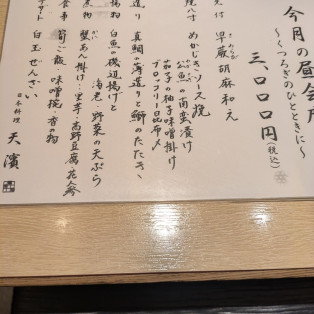 今月の昼会席
～くつろぎのひとときに～
三、〇〇〇円(税込)
先付 早蕨胡麻和え
焼八寸 めかじきソース焼
公魚の南蛮漬け
茄子の柚子味噌掛け
ブロッコリー昆布〆
造り 真鯛の薄造りと鰤のたたき
揚物 白魚の磯辺揚げと
海老・野菜の天ぷら
煮物 蟹あん掛け:里芋・高野豆腐・花人参
食事 筍ご飯・味噌椀・香の物
デザート 白玉ぜんざい
日本料理 天濱